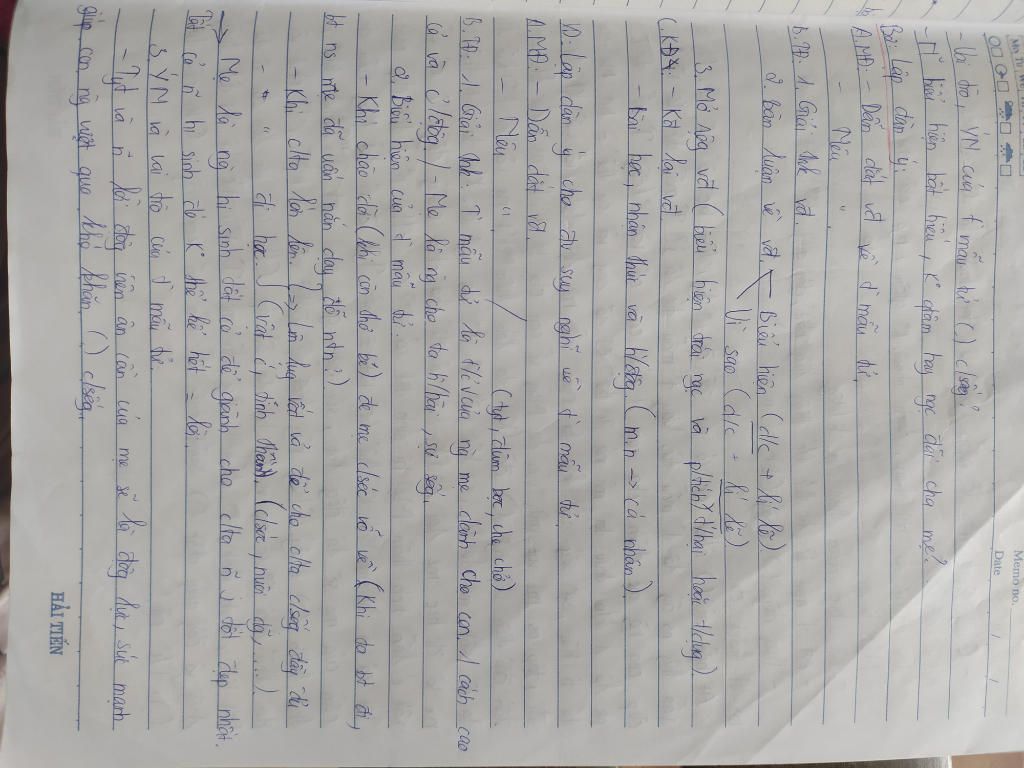 Memo no.
Date / /
- Vai trò, YN của t mẫu tử () c/sống?
- N~ biểu hiện bất hiếu, k° quan tâm hay mẹ đối cha mẹ?
B2: Lập dàn ý:
A. MB: - Dẫn dắt vđ về t² mẫu tử.
- Nêu "
B. TB: 1. Giải thk vđ.
2. Bàn luận về vđ
Biểu hiện (d/c + lí lẽ)
Vì sao (d/c + lí lẽ)
3. Mở rộng vđ (biểu hiện trái ngc và p/tích) t/hại hoặc t/dụng)
C. KB: - Kđ lại vđ
- Bài học, nhận thức và h/động. (m.n -> cá nhân).
D. Lập dàn ý cho đv suy nghĩ về t² mẫu tử.
A. MB: - Dẫn dắt vđ.
- Nêu "
(ty, đùm bọc, che chở)
B. TB: 1. Giải thk: T² mẫu tử là t/c của ng mẹ dành cho con 1 cách cao
cả và / - Mẹ là ng cho ta h/hài, sự sống.
2. Biểu hiện của t² mẫu tử.
- Khi chào đời (khi còn thơ bé) đc mẹ c/sóc vỗ về (khi ta bt đi,
bt ns mẹ đã uốn nắn dạy dỗ ntn?)
- Khi cta lớn lên
- " đi học.
=> Làm lụng vất vả để cho cta c/sống đầy đủ
(vật c², tinh thần) (c/sóc, nuôi dậy ....)
-> Mẹ là ng hi sinh tất cả để giành cho cta n~ j tốt đẹp nhất.
Tất cả n~ hi sinh đó k° thể kể hết = lời.
3. YN và vai trò của t² mẫu tử.
- Ty và n~ lời động viên ân cần của mẹ sẽ là động lực, sức mạnh
giúp con ng vượt qua khó khăn () c/sống.
HẢI TIẾN